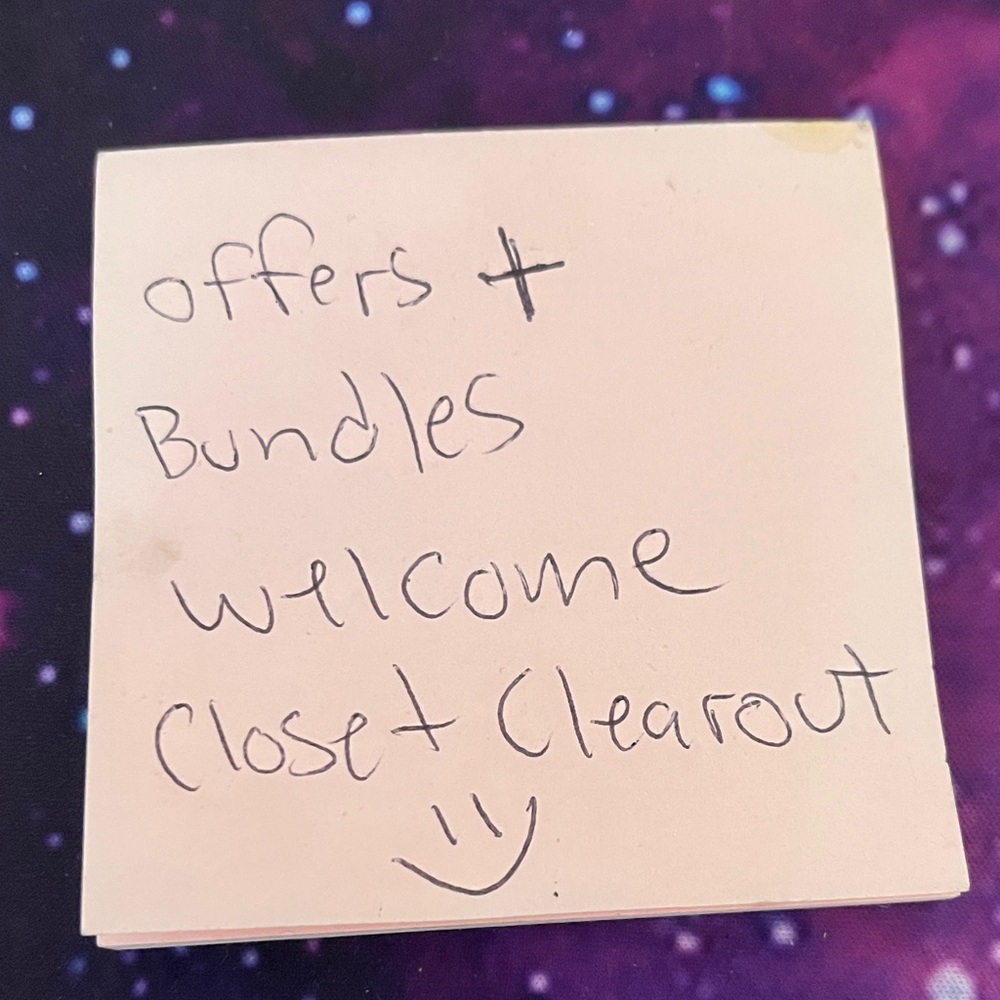 offers +
Bundles
welcome
Closet Clearout